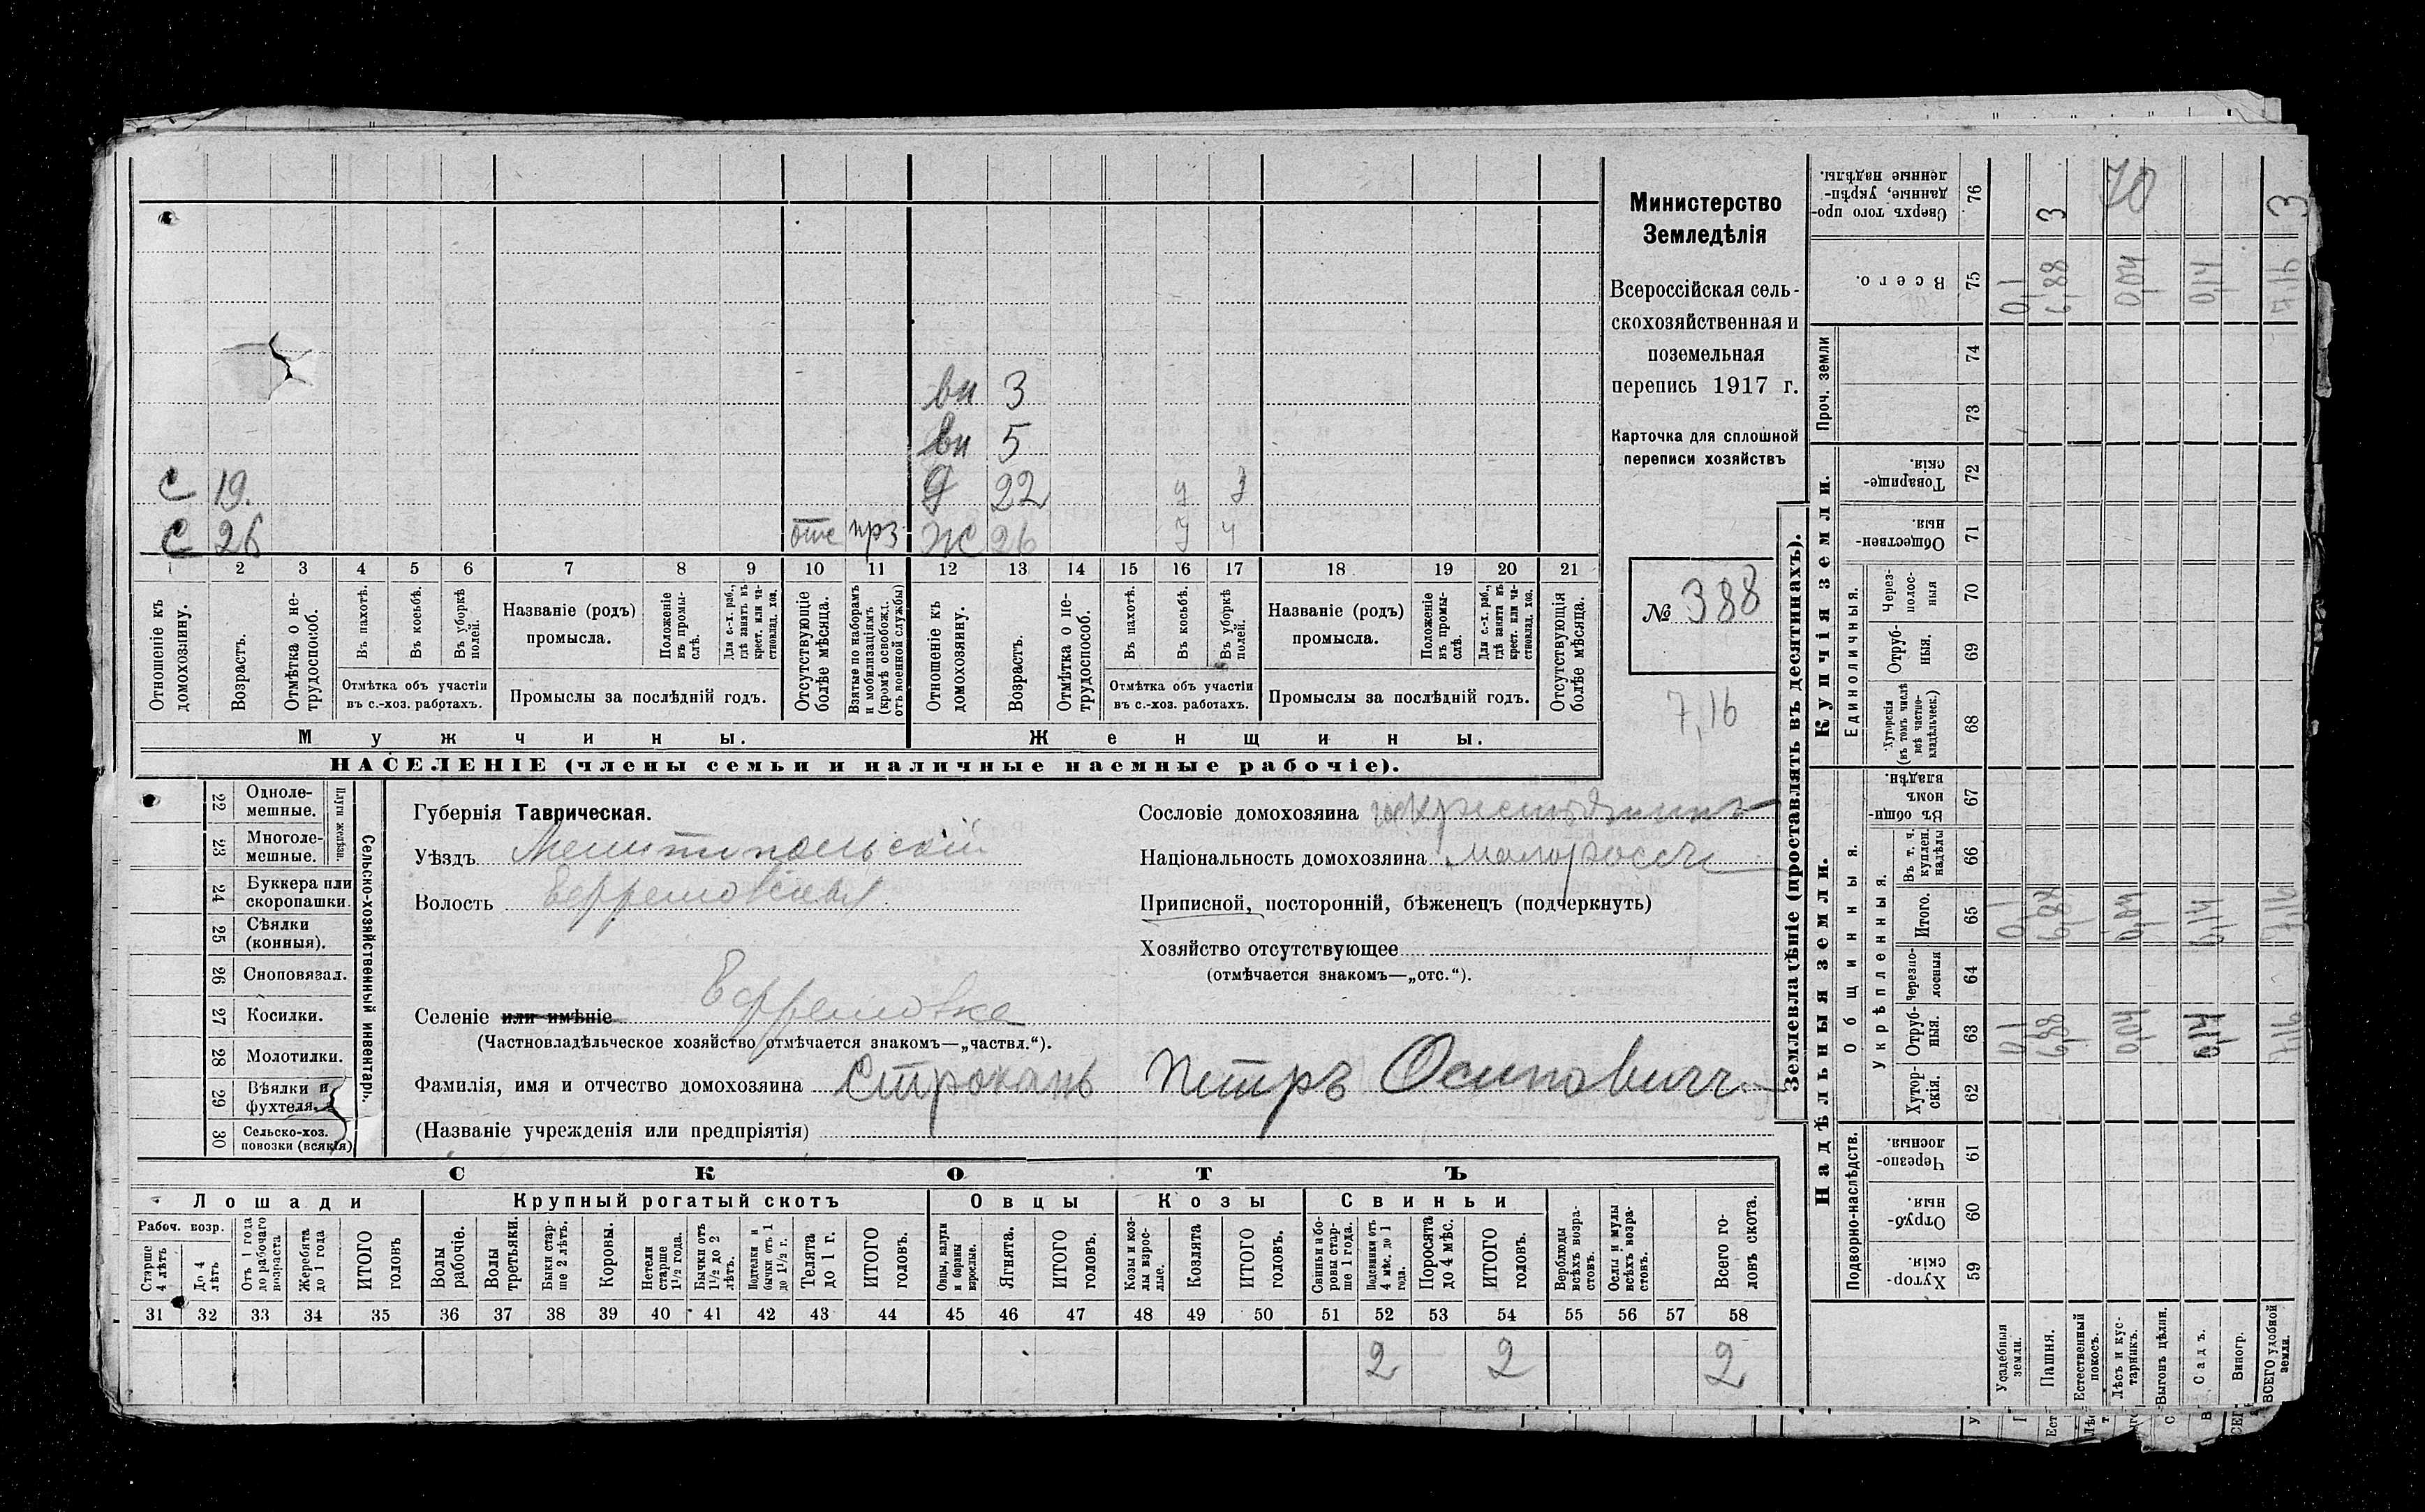 Министерство
Земледѣлія
Всероссійская сель-
скохозяйственная и
поземельная
перепись 1917 г.
Карточка для сплошной
переписи хозяйствъ
№ 388
7,16
вн 3
вн 5
С 19. д 22 у
С 26 отс прз ж 26 у ч
1 2 3 4 5 6 7 8 9 10 11 12 13 14 15 16 17 18 19 20 21
Отношеніе къ домохозяину.
Возрастъ.
Отмѣтка о не-трудоспособ.
Въ пахотѣ.
Въ косьбѣ.
Въ уборкѣ полей.
Отмѣтка объ участіи
въ с.-хоз. работахъ.
Названіе (родъ)
промысла.
Положеніе въ промы-слѣ.
Для с.-х. раб., гдѣ занятъ въ крест. или ча-стновлад. хоз.
Промыслы за послѣдній годъ.
Отсутствующіе болѣе мѣсяца.
Взятые по наборамъ и мобилизаціямъ (кромѣ освобожд. отъ военной службы)
Отношеніе къ домохозяину.
Возрастъ.
Отмѣтка о не-трудоспособ.
Въ пахотѣ.
Въ косьбѣ.
Въ уборкѣ полей.
Отмѣтка объ участіи
въ с.-хоз. работахъ.
Названіе (родъ)
промысла.
Положеніе въ промы-слѣ.
Для с.-х. раб., гдѣ занята въ крест. или ча-стновлад. хоз.
Промыслы за послѣдній годъ.
Отсутствующія болѣе мѣсяца.
Мужчины. Женщины.
НАСЕЛЕНІЕ (члены семьи и наличные наемные рабочіе).
Сельско-хозяйственный инвентарь.
Плуги желѣзн.
22 Одноле-мешные.
23 Многоле-мешные.
24 Буккера или скоропашки.
25 Сѣялки (конныя).
26 Сноповязал.
27 Косилки.
28 Молотилки.
29 Вѣялки и фухтеля.
30 Сельско-хоз. повозки (всякія)
Губернія Таврическая.
Уѣздъ Мелитопольскій
Волость Ефремовская
Селеніе или имѣніе Ефремовка
(Частновладѣльческое хозяйство отмѣчается знакомъ—„частвл.“).
Фамилія, имя и отчество домохозяина Строкань Петръ Осиповичъ
(Названіе учрежденія или предпріятія)
Сословіе домохозяина крестьянинъ
Національность домохозяина малороссъ
Приписной, посторонній, бѣженецъ (подчеркнуть)
Хозяйство отсутствующее
(отмѣчается знакомъ—„отс.“).
СКОТЪ
Лошади Крупный рогатый скотъ Овцы Козы Свиньи
Рабоч. возр.
Старше 4 лѣтъ
До 4 лѣтъ
Отъ 1 года до рабочаго возраста
Жеребята до 1 года
ИТОГО головъ
Волы рабочіе.
Волы третьяки.
Быки стар-ше 2 лѣтъ.
Коровы.
Нетели старше 1½ года.
Бычки отъ 1½ до 2 лѣтъ.
Подтелки и бычки отъ 1 до 1½ г.
Телята до 1 г.
ИТОГО головъ.
Овцы, валухи и бараны взрослые.
Ягнята.
ИТОГО головъ.
Козы и коз-лы взрос-лые.
Козлята
ИТОГО головъ.
Свиньи и бо-ровы стар-ше 1 года.
Подсвинки отъ 4 мѣс. до 1 года.
Поросята до 4 мѣс.
ИТОГО головъ.
Верблюды всѣхъ возра-стовъ.
Ослы и мулы всѣхъ возра-стовъ.
Всего го-ловъ скота.
31 32 33 34 35 36 37 38 39 40 41 42 43 44 45 46 47 48 49 50 51 52 53 54 55 56 57 58
2 2 2
Землевладѣніе (проставлять въ десятинахъ).
Надѣльныя земли. Купчія земли. Проч. земли
Подворно-наслѣдств.
Общинныя.
Укрѣпленныя.
Единоличныя.
Хутор-скія. 59
Отруб-ныя. 60
Черезпо-лосныя. 61
Хутор-скія. 62
Отруб-ныя. 63 0,1 6,88 0,04 0,14 7,16
Черезпо-лосныя 64
Итого. 65 0,1 6,88 0,04 0,14 7,16
Въ т. ч. куплен. надѣлы 66
Въ общин-номъ владѣн. 67
Хуторскія (въ томъ числѣ всѣ частно-владѣльческ.) 68
Отруб-ныя. 69
Через-полос-ныя 70
Обществен-ныя. 71
Товарище-скія. 72
73
74
Всего. 75 0,1 6,88 0,04 0,14 7,16
Сверхъ того про-данные, укрѣп-ленные надѣлы. 76 3 70 3
Усадебныя земли.
Пашня.
Естественный покосъ.
Лѣсъ и кус-тарникъ.
Выгонъ цѣлин.
Садъ.
Виногр.
ВСЕГО удобной земли.